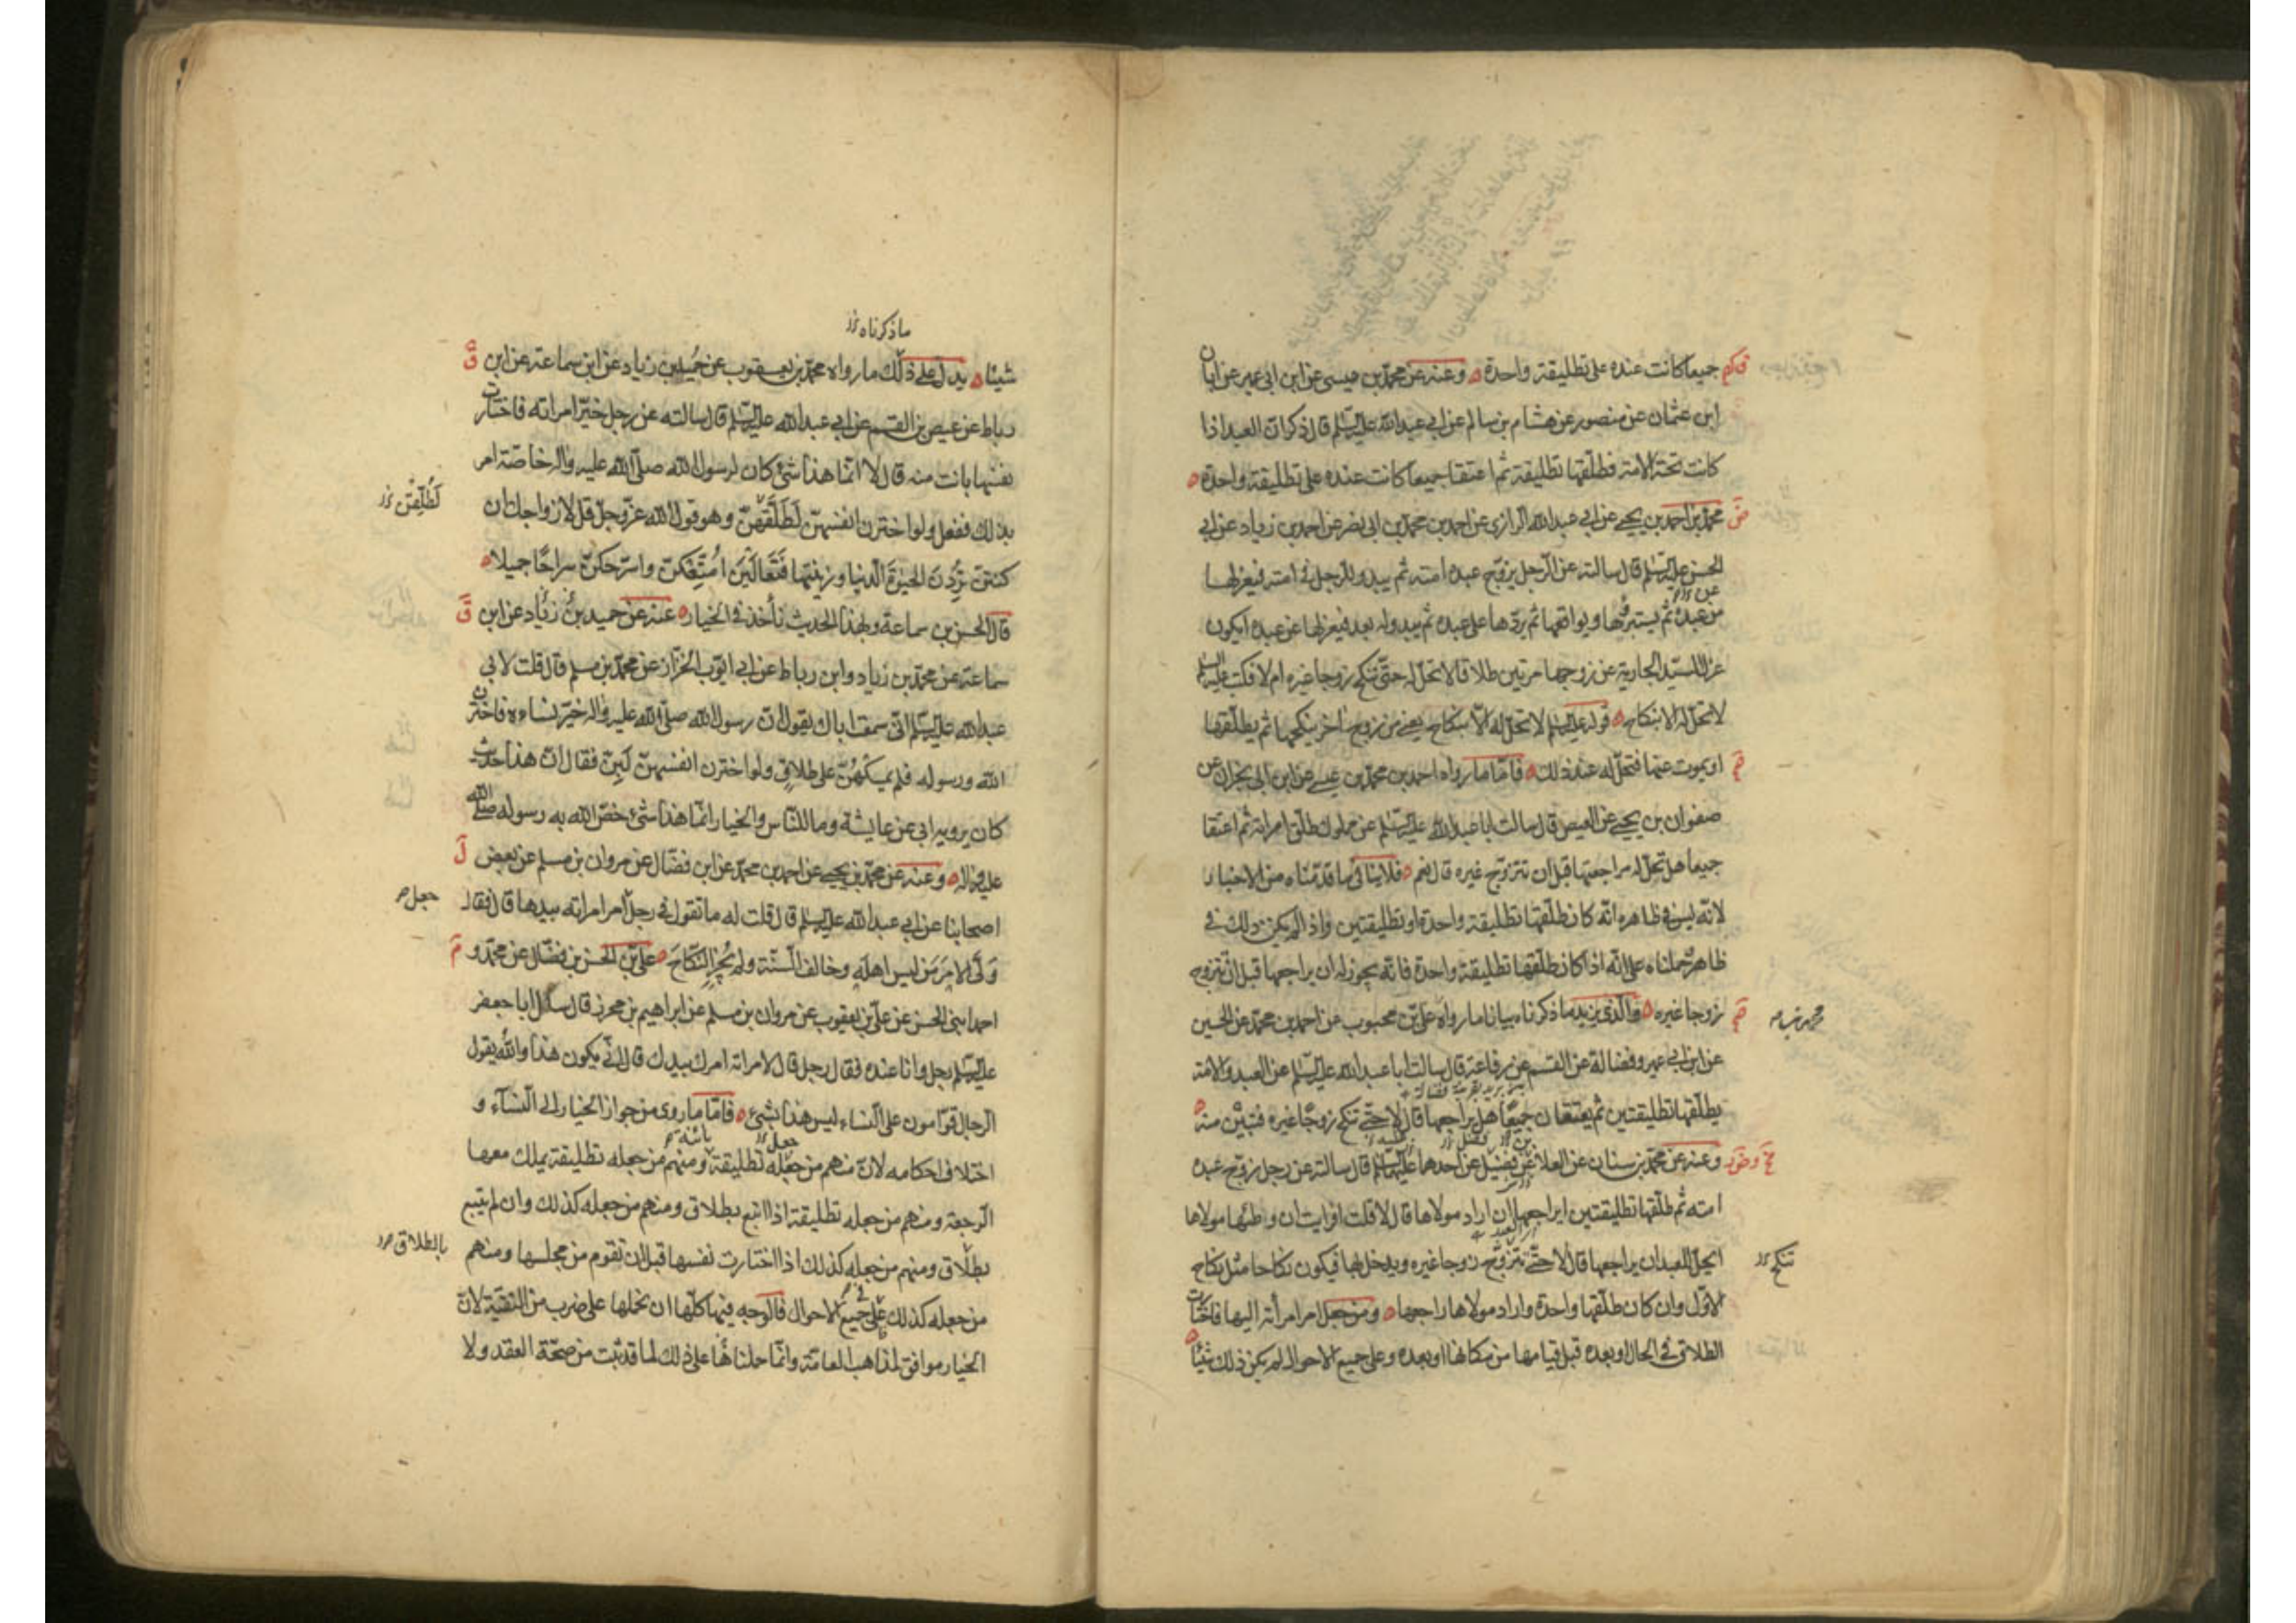 جميعا كانت عنده على تطليقة واحدة وعنه عن محمد بن عيسى عن ابن ابى عمير عن ابان
ابن عثمان عن منصور عن هشام بن سالم عن ابي عبد الله عليه السلم قال ذكر ان العبد اذا
كانت تحته الامة فطلقها تطليقة ثم اعتقا جميعا كانت عنده على تطليقة واحدة
محمد بن احمد بن يحيى عن ابي عبد الله الرازي عن احمد بن محمد بن ابي نصر عن احمد بن زياد عن ابي
الحسن عليه السلم قال سالته عن الرجل يزوج عبده امته ثم يبدو للرجل في امته فيعزلها
من عبده ثم يستبرئها ويواقعها ثم يردها على عبده ثم يبدو له بعد فيعزلها عن عبده ايكون
عزل السيد الجارية عن زوجها مرتين طلاقا لا تحل له حتى تنكح زوجا غيره ام لا فكتب عليه السلم
لا تحل له الا بنكاح قوله عليه السلم لا تحل له الا بنكاح يعني من زوج اخر ينكحها ثم يطلقها
او يموت عنها فتحل له عند ذلك فاما ما رواه احمد بن محمد بن عيسى عن ابن ابي نجران عن
صفوان بن يحيى عن العيص قال سالت ابا عبد الله عليه السلم عن مملوك طلق امراته ثم اعتقا
جميعا هل تحل له مراجعتها قبل ان تتزوج غيره قال نعم فلا ينافي ما قدمناه من الاخبار
لانه ليس في ظاهره انه كان طلقها تطليقة واحدة او تطليقتين واذا لم يكن ذلك في
ظاهره حملناه على انه اذا كان طلقها تطليقة واحدة فانه يجوز له ان يراجعها قبل ان تتزوج
زوجا غيره والذي يزيد ما ذكرناه بيانا ما رواه علي بن محبوب عن احمد بن محمد عن الحسين
عن ابن ابي عمير وفضالة عن القسم عن رفاعة قال سالت ابا عبد الله عليه السلم عن العبد والامة
يطلقها تطليقتين ثم يعتقان جميعا هل يراجعها قال لا حتى تنكح زوجا غيره فتبين منه
وعنه عن محمد بن سنان عن العلا عن فضيل عن احدهما عليهما السلم قال سالته عن رجل زوج عبده
امته ثم طلقها تطليقتين ايراجعها ان اراد مولاها قال لا قلت افرايت ان وطئها مولاها
ايحل للعبد ان يراجعها قال لا حتى تتزوج زوجا غيره ويدخل بها فيكون نكاحا مثل نكاح
تنكح
الاول وان كان طلقها واحدة واراد مولاها راجعها ومن جعل امر امرأته اليها فاختارت
الطلاق في الحال او بعده قبل قيامها من مكانها او بعده وعلى جميع الاحوال لم يكن ذلك شيئا
ما ذكرناه
شيئا يدل على ذلك ما رواه محمد بن يعقوب عن حميد بن زياد عن ابن سماعة عن ابن
رباط عن عيص بن القسم عن ابي عبد الله عليه السلم قال سالته عن رجل خير امراته فاختارت
نفسها بانت منه قال لا انما هذا شئ كان لرسول الله صلى الله عليه واله خاصة امر
بذلك ففعل ولو اخترن انفسهن لطلقهن وهو قول الله عز وجل قل لازواجك ان
لطلقن
كنتن تردن الحيوة الدنيا وزينتها فتعالين امتعكن واسرحكن سراحا جميلا
قال الحسن بن سماعة وبهذا الحديث نأخذ في الخيار عنه عن حميد بن زياد عن ابن
سماعة عن محمد بن زياد وابن رباط عن ابي ايوب الخزاز عن محمد بن مسلم قال قلت لابي
عبد الله عليه السلم اني سمعت اباك يقول ان رسول الله صلى الله عليه واله خير نساءه فاخترن
الله ورسوله فلم يمسكهن على طلاق ولو اخترن انفسهن لبن فقال ان هذا حديث
كان يرويه ابي عن عايشة وما للناس والخيار انما هذا شئ خص الله به رسوله صلى الله
عليه واله وعنه عن محمد بن يحيى عن احمد بن محمد عن ابن فضال عن مروان بن مسلم عن بعض
اصحابنا عن ابي عبد الله عليه السلم قال قلت له ما تقول في رجل امر امراته بيدها قال فقال
جعل
ولى الامر من ليس اهله وخالف السنة ولم يجز النكاح علي بن الحسن بن فضال عن محمد و
احمد ابني الحسن عن علي بن يعقوب عن مروان بن مسلم عن ابراهيم بن محرز قال سال ابا جعفر
عليه السلم رجل وانا عنده فقال رجل قال لامراته امرك بيدك قال اني يكون هذا والله يقول
الرجال قوامون على النساء ليس هذا بشئ فاما ما روى من جواز الخيار الى النساء و
اختلاف احكامه لان منهم من جعله تطليقة ومنهم من جعله تطليقة يملك معها
الرجعة ومنهم من جعله تطليقة اذا اتبع بطلاق ومنهم من جعله كذلك وان لم يتبع
بطلاق ومنهم من جعله كذلك اذا اختارت نفسها قبل ان تقوم من مجلسها ومنهم
بالطلاق
من جعله كذلك على جميع الاحوال فالوجه فيها كلها ان نحملها على ضرب من التقية لان
الخيار موافق لمذاهب العامة وانما حملناها على ذلك لما قد ثبت من صحة العقد ولا